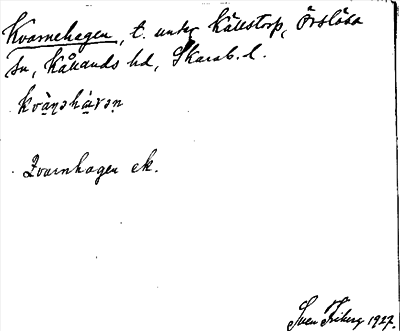 Kvarnehagen, t. under Källstorp, Örslösa
sn, Kållands hd, Skarab. l.
kvàṇəhàɡən
Qvarnhagen ek.
Sven Friberg 1927.